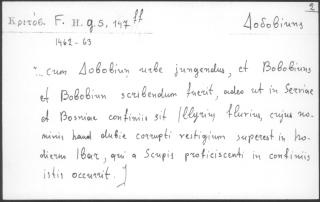 2
Κριτόβ. F. H. g. 5, 147 ff Δοβόβιυνς
1462-63
"cum Δοβοβίυν urbe jungendus, et Βοβοβιυνς
et Βοβοβιυν scribendum fuerit, adeo ut in Serviae
et Bosniae confiniis sit Illyrius fluvius, cujus no-
minis haud dubie corrupti vestigium superest in ho-
dierno Ibar, qui a Scupis proficiscenti in confiniis
istis occurrit.]